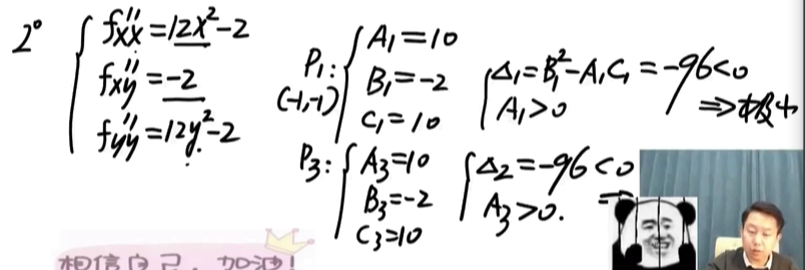 2° { f''xx = 12x² - 2
f''xy = -2
f''yy = 12y² - 2
P₁: (-1,-1) { A₁ = 10
B₁ = -2
C₁ = 10
{ Δ₁ = B₁² - A₁C₁ = -96 < 0
A₁ > 0
⇒ 极小
P₃: { A₃ = 10
B₃ = -2
C₃ = 10
{ Δ₂ = -96 < 0
A₃ > 0.
相信自己，加油！